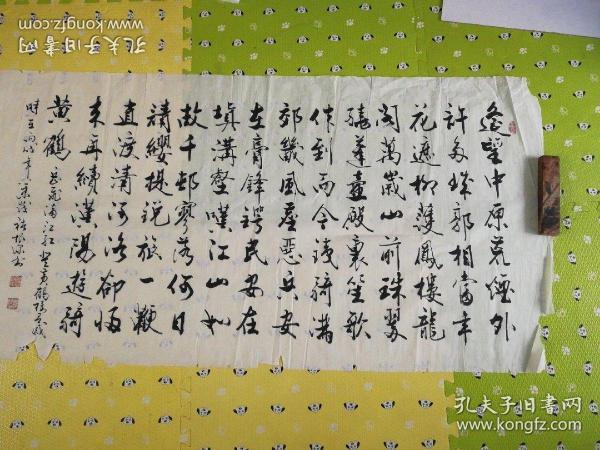 孔夫子旧书网
www.kongfz.com
遙望中原荒煙外
許多城郭想當年
花遮柳護鳳樓龍
阁萬歲山前珠翠
繞蓬壺殿裏笙歌
作到而今鐵騎滿
郊畿風塵惡兵安
在膏鋒鍔民安在
填溝壑嘆江山如
故千邨寥落何日
請纓提銳旅一鞭
直渡清河洛却歸
来再續漢陽遊騎
黄鶴 岳飛滿江紅 登黄鶴樓有感
孔夫子旧书网
www.kongfz.com